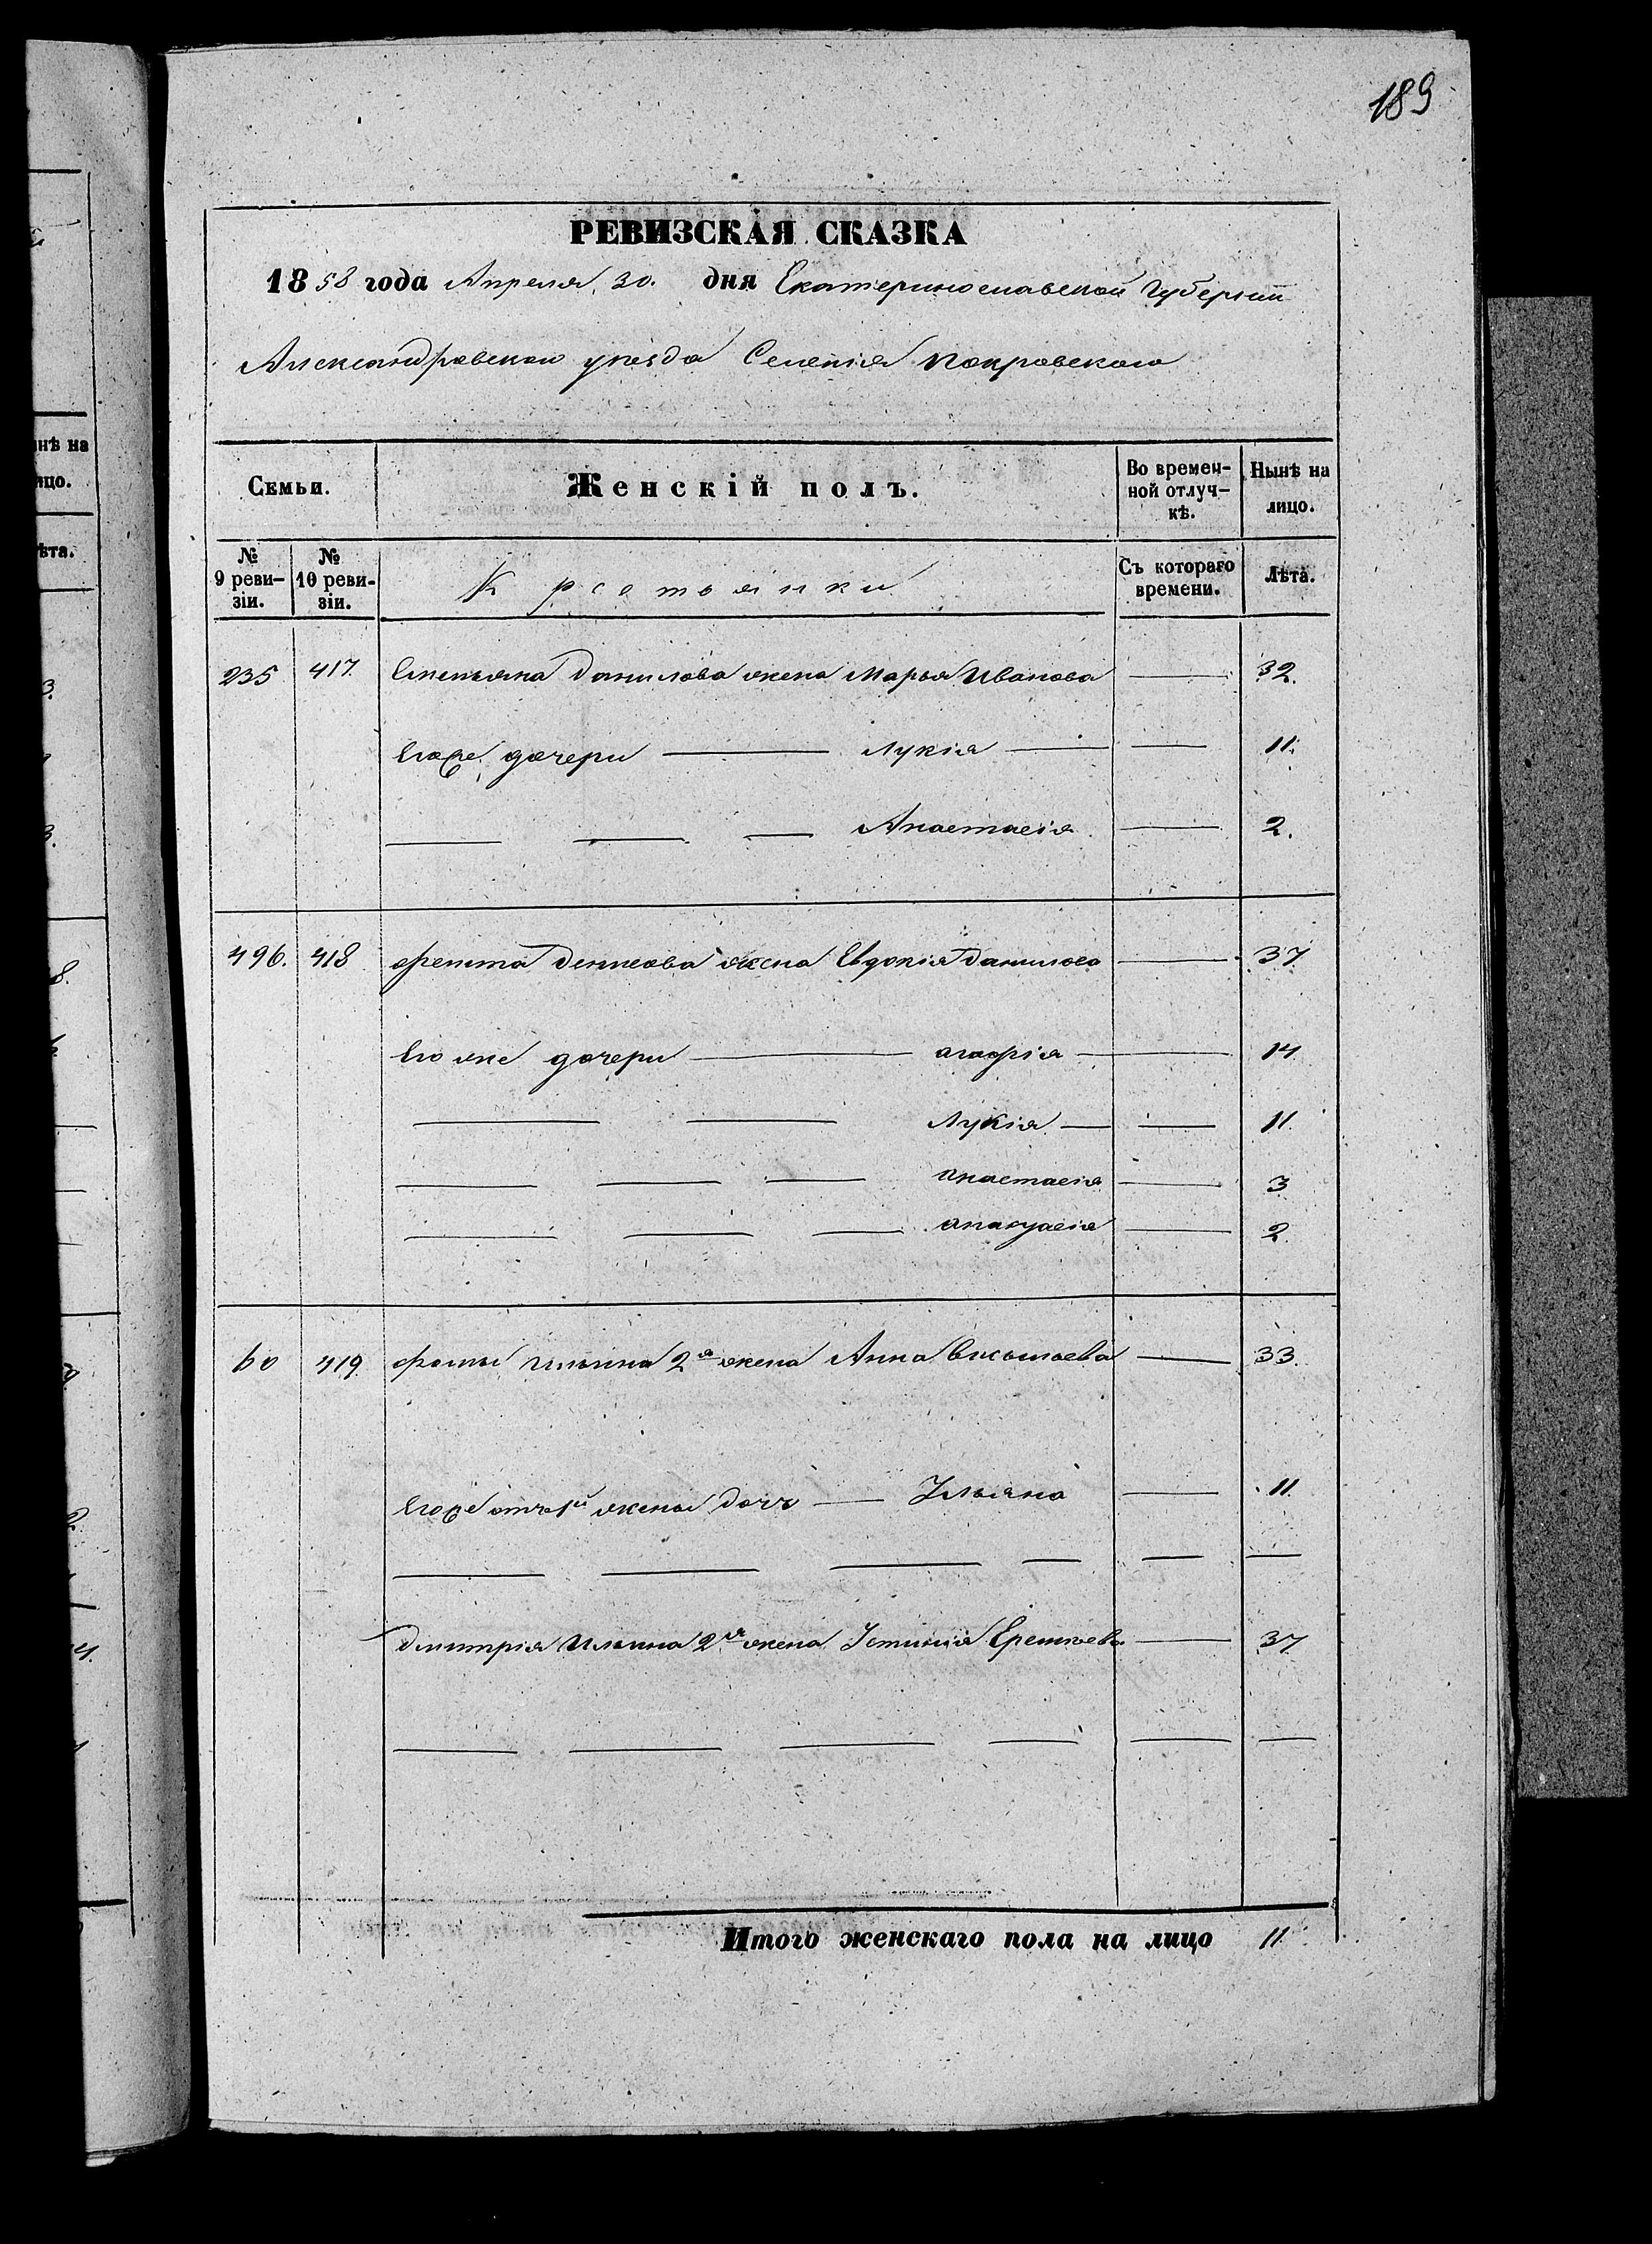 189
РЕВИЗСКАЯ СКАЗКА
1858 года Апреля 30. дня Екатеринославской Губернии
Александровскаго уезда Селенія Покровскаго
Семьи. Женскій полъ. Во времен-ной отлуч-кѣ. Нынѣ на лицо.
№ 9 реви-зіи. № 10 реви-зіи. Крестьянки Съ котораго времени. Лѣта.
235 417. Емельяна Данилова жена Марья Иванова 32.
Егоже дочери Лукія 11.
Анастасія 2.
496. 418 Денисова жена Евдокія Данилова 37
Его же дочери агафія 14
Лукія 11.
анастасія 3
2.
60 419. фомы Ильина 2я жена Анна 33.
Егоже отъ 1й жены дочь Ульяна 11.
Дмитрія Ильина 2я жена Устинія Еремѣева 37
Итого женскаго пола на лицо 11
нѣ на
ицо.
ѣта.